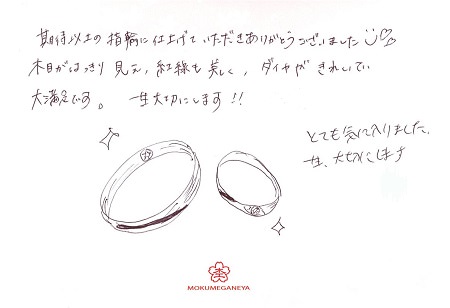 期待以上の指輪に仕上げていただきありがとうございました
木目がはっきり見え、紅線も美しく、ダイヤがきれいでい
大満足です。 一生大切にします!!
とても気に入りました。
一生、大切にします
MOKUMEGANEYA